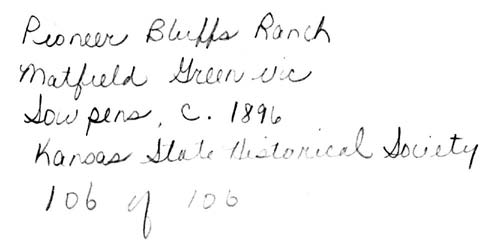 Pioneer Bluffs Ranch
Matfield Green vic
Sow pens, c. 1896
Kansas State Historical Society
106 of 106